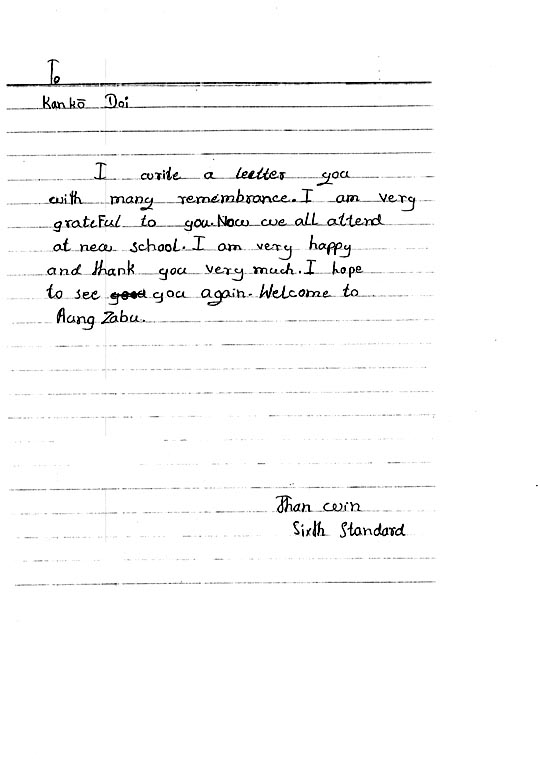 To
Kankō Doi
I write a leetter you
with many remembrance. I am very
grateful to you. Now we all attend
at new school. I am very happy
and thank you very much. I hope
to see you again. Welcome to
Aung Zabu.
Than win
Sixth Standard